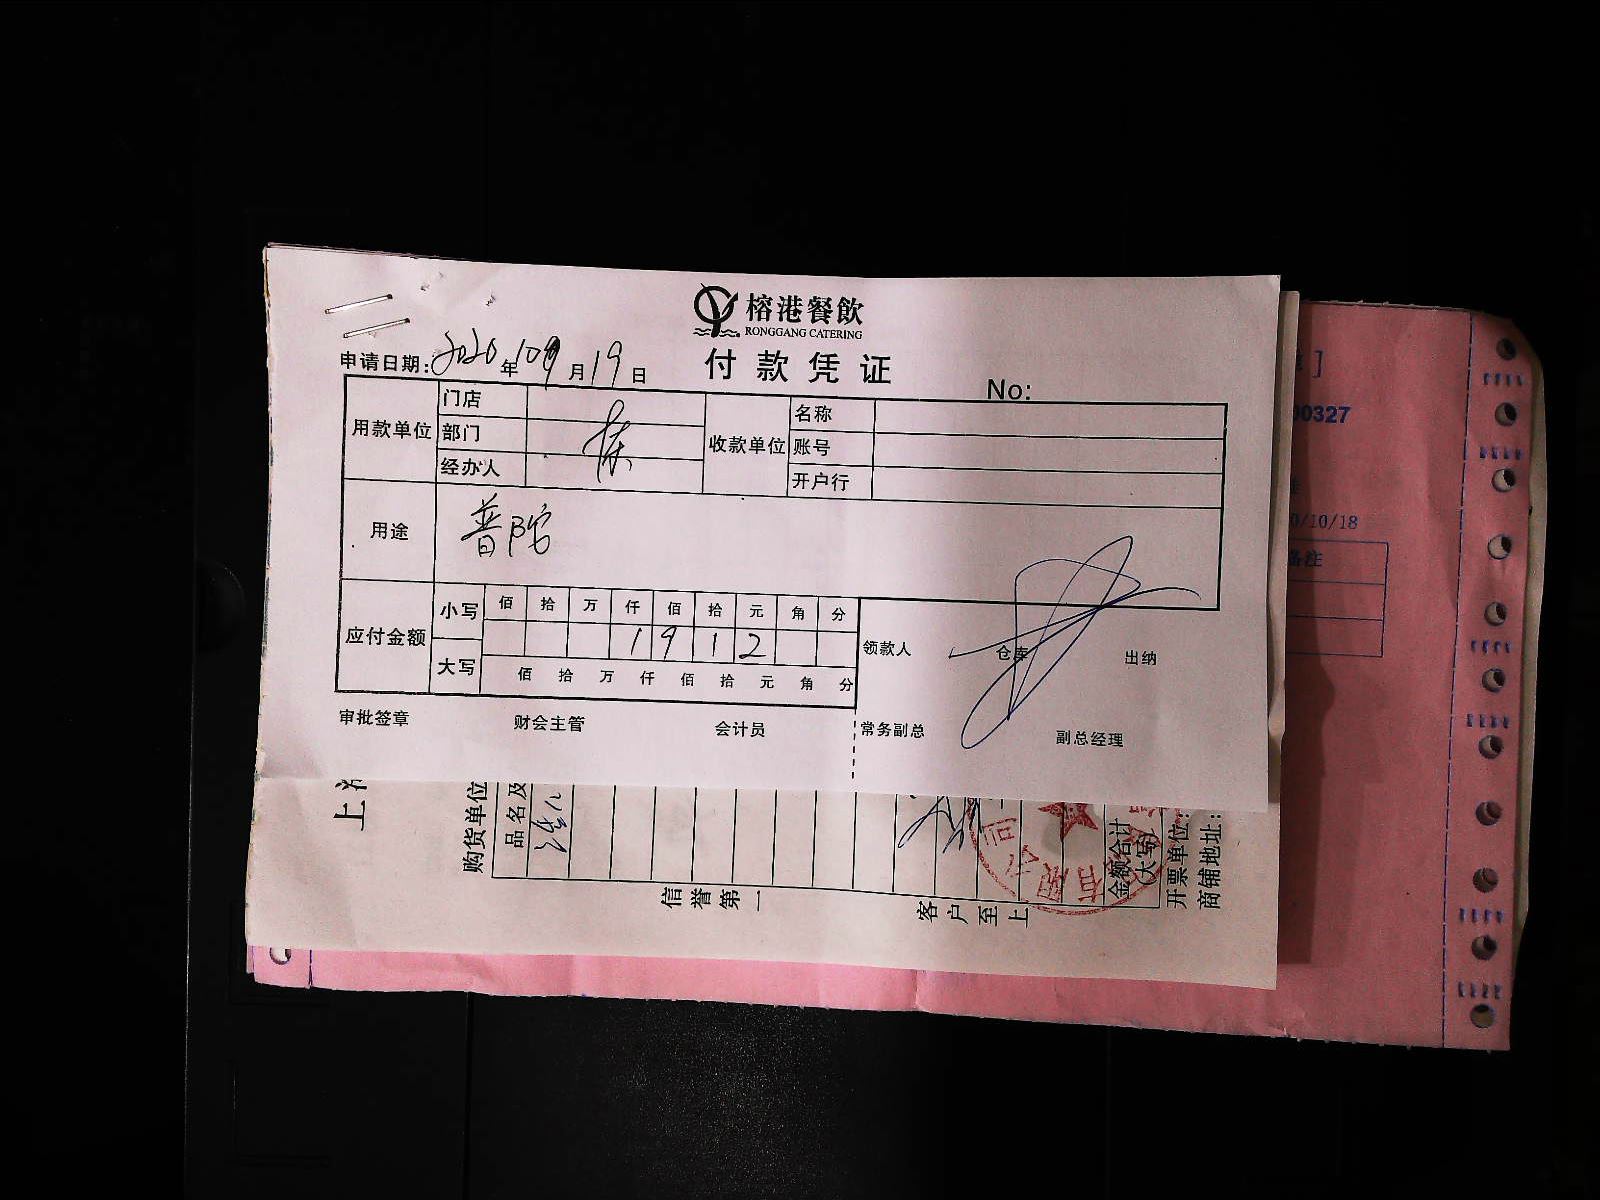 榕港餐飲
RONGGANG CATERING
付款凭证
申请日期: 2020 年 10 月 19 日
No:
用款单位 门店 收款单位 名称
部门 账号
经办人 开户行
用途 普陀
应付金额 小写 佰 拾 万 仟 佰 拾 元 角 分
1 9 1 2
大写 佰 拾 万 仟 佰 拾 元 角 分
领款人 仓库 出纳
审批签章 财会主管 会计员 常务副总 副总经理
上
购货单位
品名及
信誉第一
客户至上
金额合计
(大写)
开票单位:
商铺地址:
限公司
]
00327
0/10/18
备注